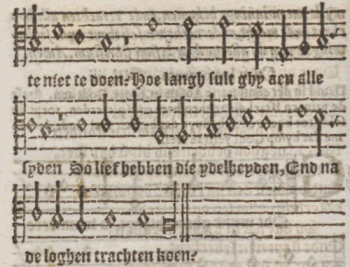 te niet te doen? Hoe langh sult ghy aen alle
syden So lief hebben die ydelheyden, End na
de loghen trachten koen?